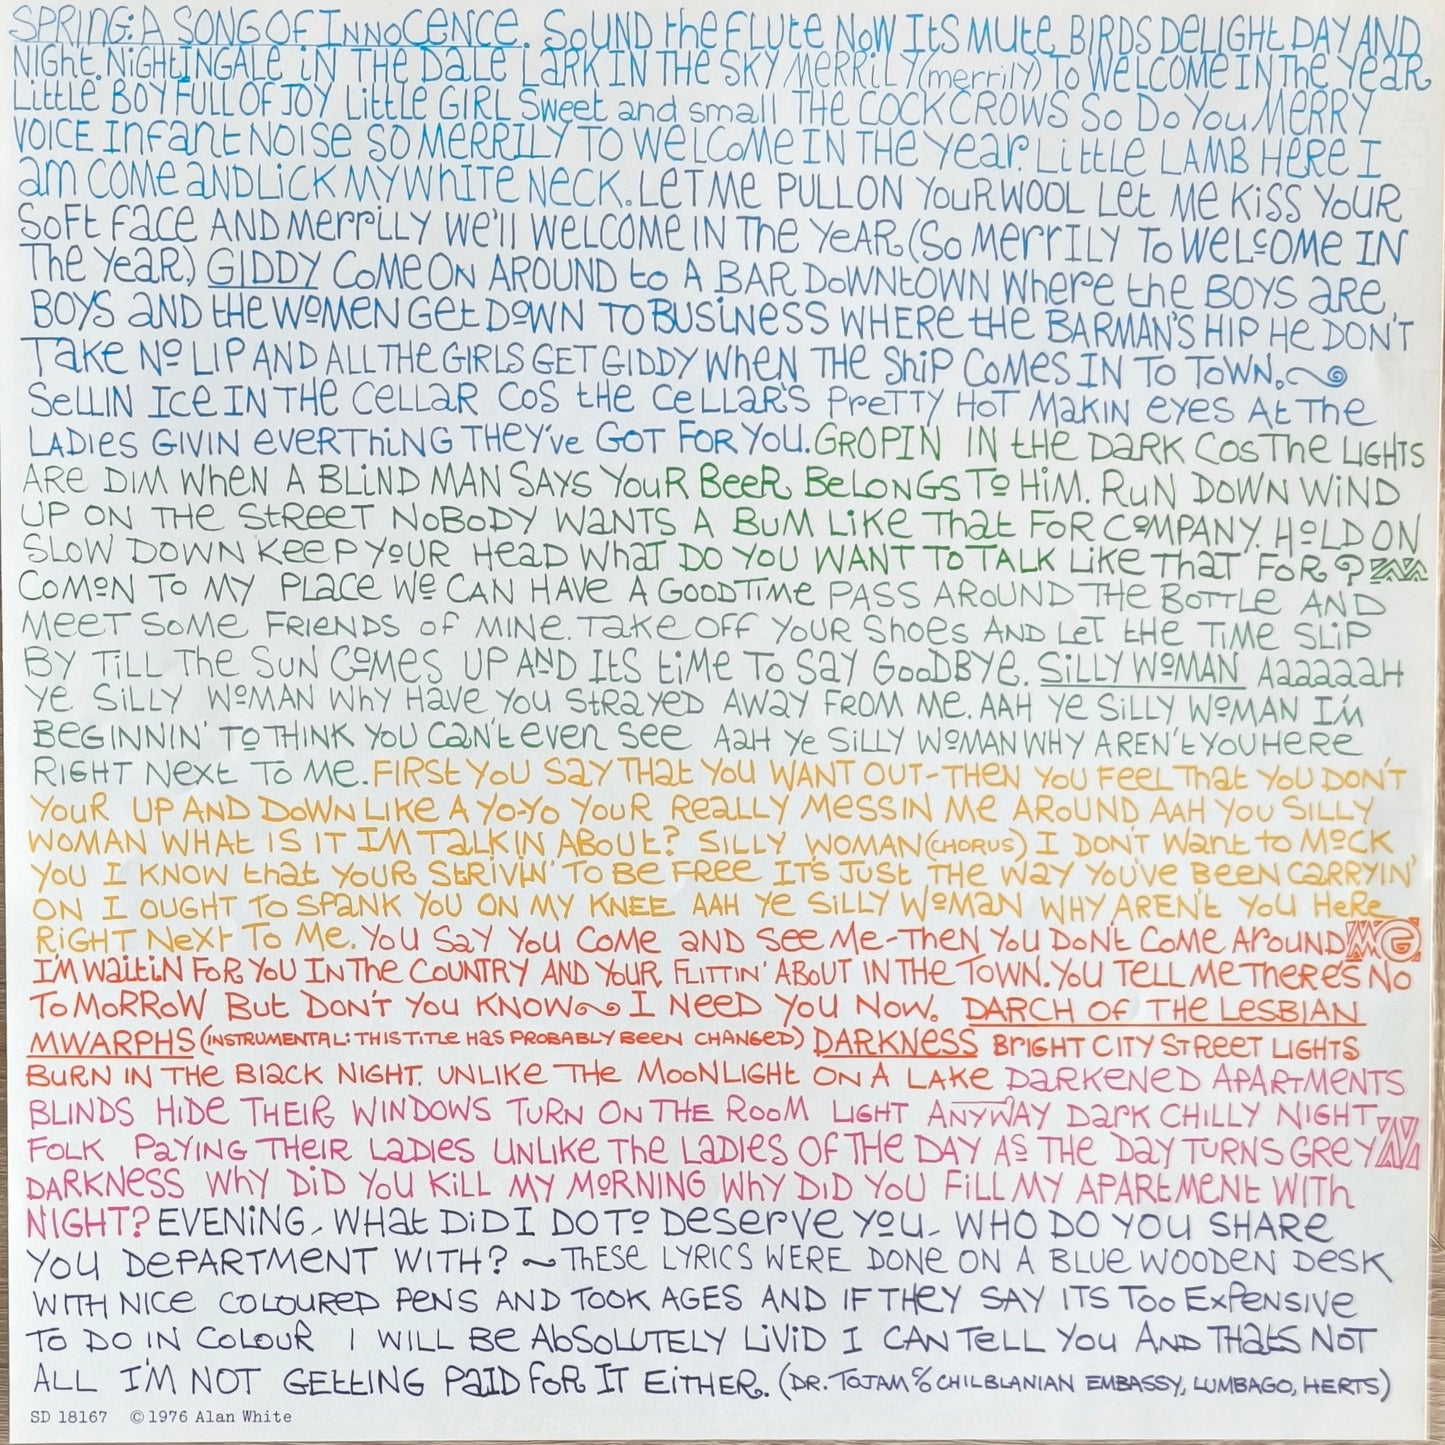 SPRING: A SONG OF INNOCENCE. SOUND the FLUte NOW ItS MUte BIRDS DELIGHt DAY AND
NIGHt. NIGHtINGALe iN THe DaLe LARK IN THe SKY MeRRiLY (merrily) To WeLCOMe IN The YeaR
LittLe BOY FULL OF JOY LittLe GIRL Sweet and small THe COCK CROWS So Do You MeRRY
VOICe InFant NOISe SO MERRILY TO WeLCoMe IN THe Year. LittLe LAMB HeRe I
am COMe aND LiCK MY WHITe NeCK. LeT Me PULL ON YouR WOOL Let Me KiSS YoUR
SoFt Face AND MerriLLY We'll WeLCOMe IN The YeAR (So Merr ILY To WeLCOMe IN
The YeaR.) GIDDY CoMe ON AROUND to A BAR DoWNtOWN Where the BOYS aRe
BOYS aND tHe WOMeN Get DOWN TO BUSiNeSS WHeRe tHe BARMAN'S HIP He DON'T
Take NO LIP AND ALL THe GIRLS GeT GIDDY WHeN THe ShiP CoMeS IN To ToWN.
SeLLIN Ice IN THe CeLLaR CoS tHe CeLLaR'S PReTTY HoT MaKiN eYeS At The
LADieS GIVIN eVeRThiNG THeY've GoT FoR YoU. GROPIN IN tHe DaRK CoS The LIGHtS
ARe DIM WHeN A BLiND MAN SAYS YouR BeeR BeLoNGS To HiM. RuN DoWN WiND
UP ON THe StReeT NoBoDY WaNTS A BuM LiKe THat FoR CoMPANY. HoLD ON
SLOW DOWN KeeP YoUR HeaD WHaT DO YOU WANT To TALK LiKe THaT FoR?
CoMoN To MY PLace We CAN HaVe A GooD TiMe PASS ARoUND THe BoTTLe AND
MeeT SoMe FRieNDS oF MiNe. TaKe OFF YoUR ShoeS AND LeT tHe TiMe SLiP
BY TiLL THe SUN CoMeS UP AND ItS tiMe To SaY GooDBYe. SiLLY WoMAN Aaaaaah
Ye SiLLY WoMAN WhY Have You StRaYeD AWaY FRoM Me. AAH Ye SiLLY WoMAN I'M
BeGINNIN' To THINK YoU CaN't even See AaH Ye SiLLY WoMAN WHY AReN't YoU HeRe
RIGHT NeXt To Me. FIRSt YoU SaY THat YoU WANT OUT-THeN YoU FeeL That YoU DON'T
YoUR UP AND DoWN LiKe A YO-YO YoUR ReaLLY MeSSIN Me AROUND AAH YoU SiLLY
WOMAN WHAt IS IT I'M TaLKiN ABoUt? SiLLY WOMAN (CHORUS) I DON'T Want to MoCK
YoU I KNOW that YoUR StRiViN' To Be FRee IT'S JuSt THe WaY YoU'Ve BeeN CaRRYIN'
ON I OUGHT To SPaNK YOU ON MY KNee AAH Ye SiLLY WoMaN WHY AReN't YoU HeRe
RiGHT NeXt To Me. YoU SaY YoU CoMe aND See Me-THeN YoU DoN't CoMe ARoUND
I'M WaitiN FoR YoU IN THe COUNTRY AND YoUR FLiTTiN' ABoUT IN THe ToWN. YoU TeLL Me THeRe'S No
ToMoRRoW BuT DoN'T YoU KNOW I NeeD YoU NoW. DARCH OF THe LeSBIAN
MWARPHS (INSTRUMENTAL: THIS TITLe HaS PRoBABLY BeeN CHANGeD) DARKNeSS BRIGHT CITY StReeT LiGHTS
BURN IN THe BLaCK NIGHT. UNLiKe THe MooNLiGHt ON A LaKe DaRKeNeD APARTMeNTS
BLINDS HiDe THeiR WiNDOWS TuRN ON THe RooM LiGHT ANYWAY DaRK CHiLLY NIGHT
FoLK PaYiNG THeiR LaDieS UNLiKe THe LaDieS OF THe DAY AS THe DaY TuRNS GReY
DARKNeSS WhY DiD YoU KiLL MY MoRNING WhY DiD YoU FiLL MY APARtMeNt WiTh
NIGHT? EVENiNG. WHat DiD I DO To DeSeRve YoU. WHO DO YOU SHARe
YOU DePARTMeNT WITH? THeSe LYRICS WeRe DONe ON A BLUe WOODeN DeSK
WITH NICe COLOUReD PeNS AND TOOK AGeS AND IF THeY SAY ITS Too ExPeNSIVe
TO DO IN COLOUR I WILL Be AbSOLUTeLY LiViD I CAN TeLL YOU AND THatS NOT
ALL I'M NOT GettING PaiD FoR IT EiTHeR. (DR. TOJAM c/o CHILBLANIAN EMBASSY, LUMBAGO, HERTS)
SD 18167 © 1976 Alan White